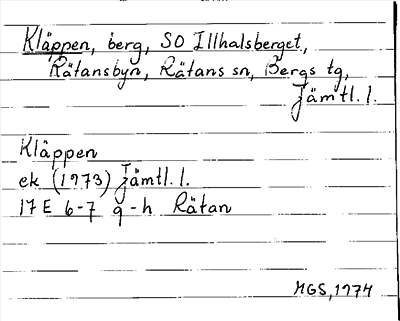 Kläppen, berg, SO Illhalsberget,
Rätansbyn, Rätans sn, Bergs tg,
Jämtl. l.
Kläppen
ek (1973) Jämtl. l.
17 E 6-7 g-h Rätan
MGS, 1974